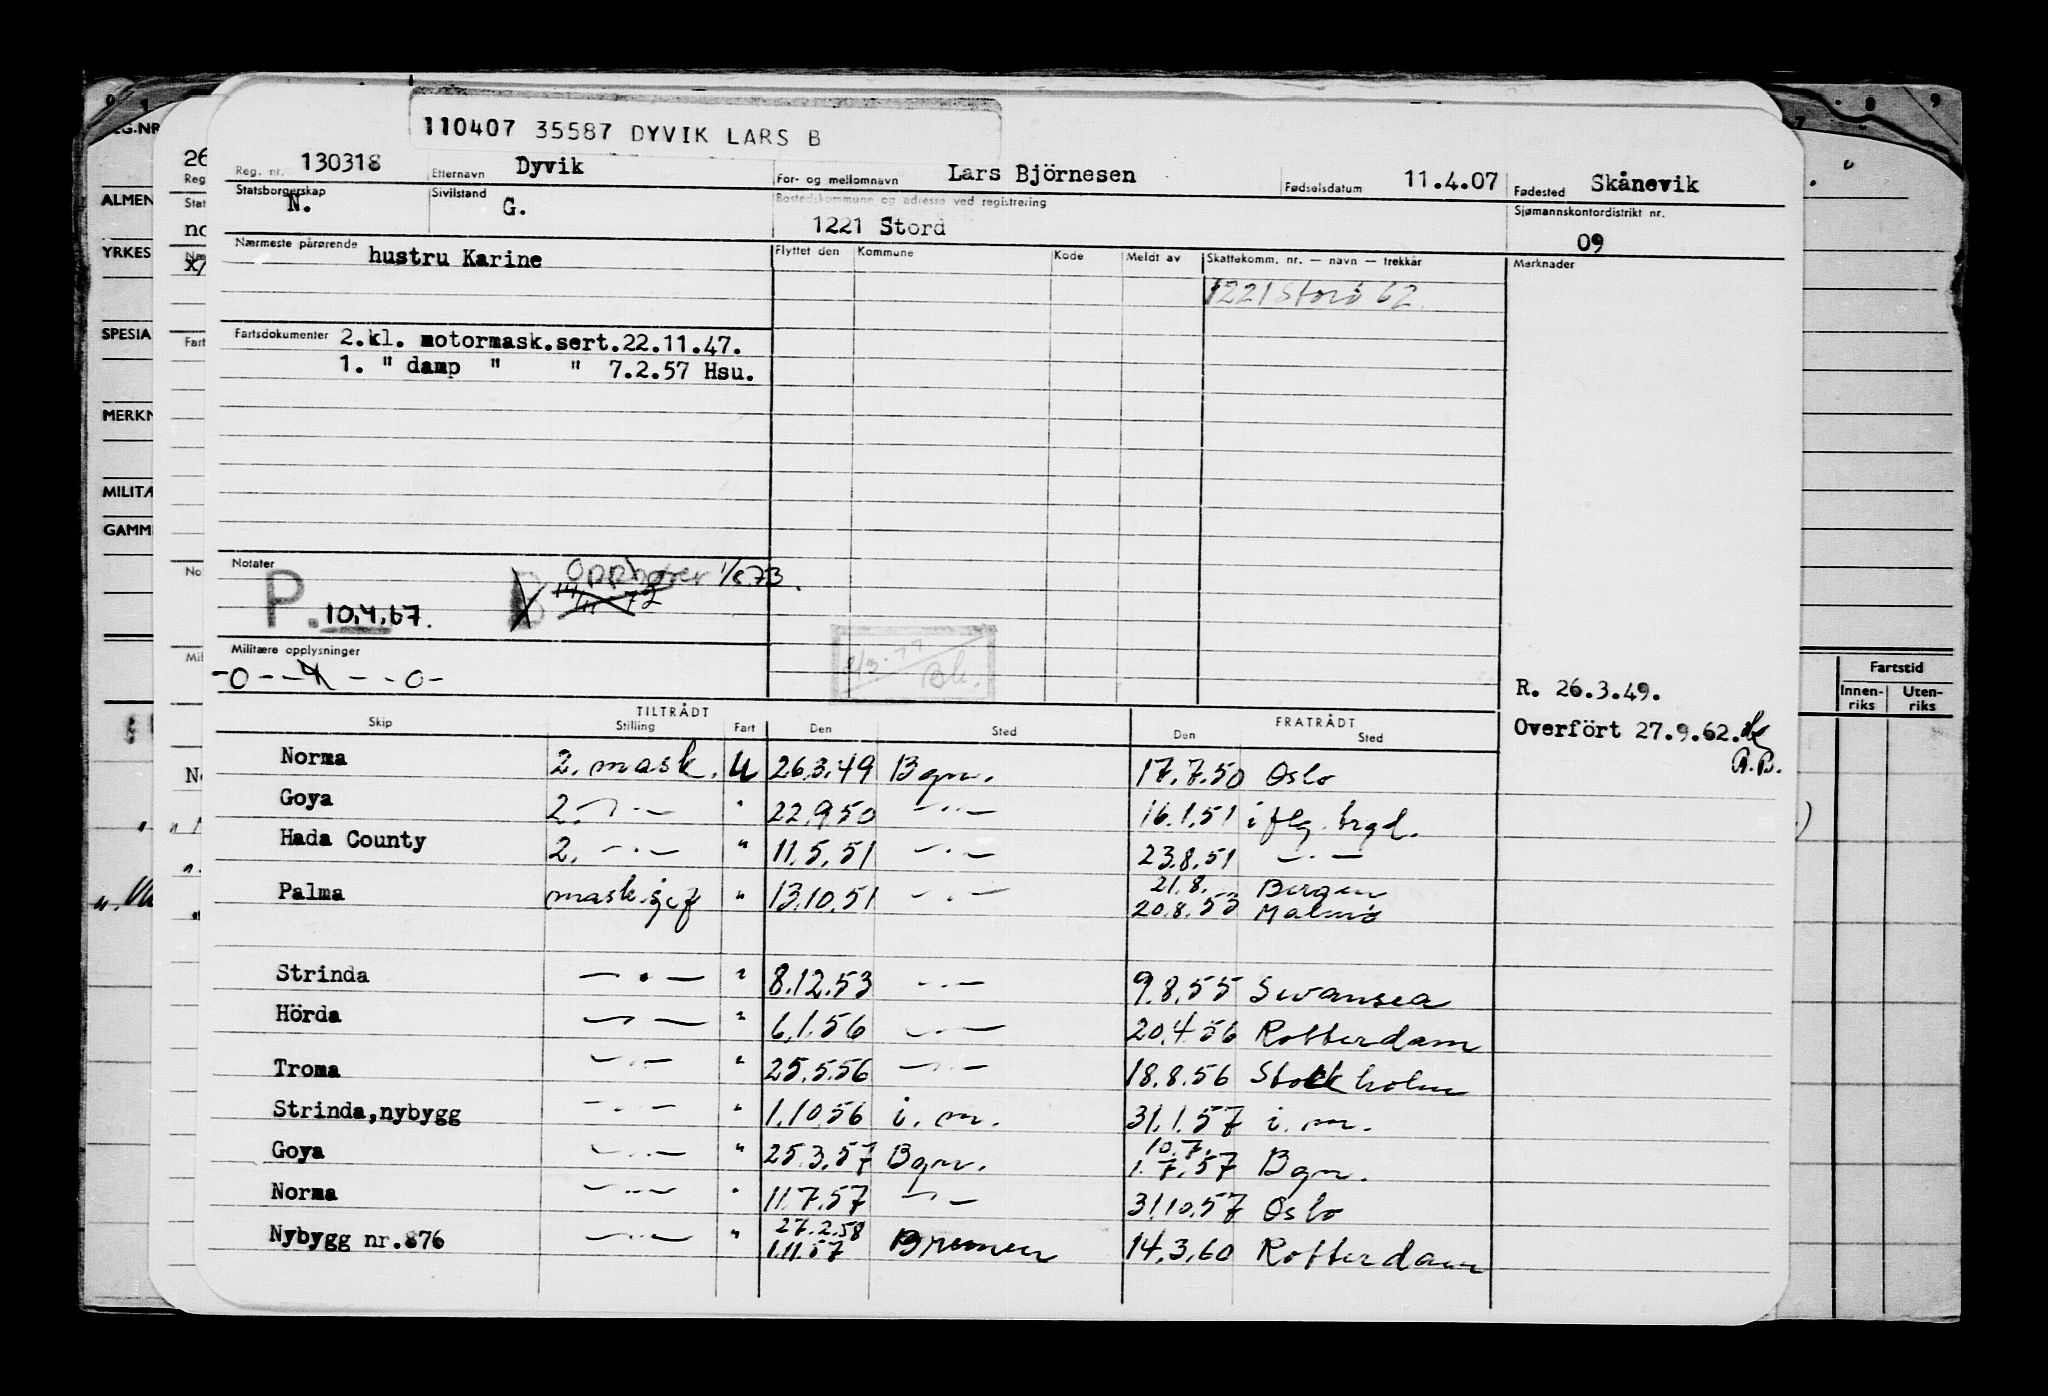 110407 35587 DYVIK LARS B
Reg. nr. 130318 Etternavn Dyvik For- og mellomnavn Lars Björnesen Fødselsdatum 11.4.07 Fødested Skånevik
Statsborgerskap N. Sivilstand G. Bostedskommune og adresse ved registrering 1221 Stord Sjømannskontordistrikt nr. 09
Nærmeste pårørende hustru Karine Flyttet den Kommune Kode Meldt av Skattekomm. nr. — navn — trekkår Merknader
1221 Stord 62.
Fartsdokumenter 2.kl. motormask.sert.22.11.47.
1. " damp " " 7.2.57 Hsu.
Notater
Opphører 1/8.73.
P. 10.4.67.
14/11 72
Militære opplysninger
-0--4--0-
Bk.
R. 26.3.49.
Overfört 27.9.62.
A.B.
TILTRÅDT FRATRÅDT
Skip Stilling Fart Den Sted Den Sted
Norma 2. mask. U 26.3.49 Bgn. 17.7.50 Oslo
Goya 2. —·— " 22.9.50 —··— 16.1.51 i flg. brgd.
Hada County 2. —·— " 11.5.51 —·— 23.8.51 —·—
21.8. Bergen
Palma mask.sjef " 13.10.51 —·— 20.8.53 Malmö
Strinda —·— " 8.12.53 —··— 9.8.55 Swansea
Hörda —·— " 6.1.56 —·— 20.4.56 Rotterdam
Troma —··— " 25.5.56 —·— 18.8.56 Stockholm
Strinda,nybygg —··— " 1.10.56 i. m. 31.1.57 i. m.
10.7.
Goya —··— " 25.3.57 Bgn. 1.7.57 Bgn.
Norma —··— " 11.7.57 —·— 31.10.57 Oslo
27.2.58
Nybygg nr.876 —··— " 1.11.57 Bremen 14.3.60 Rotterdam
REG.NR
ALMEN
YRKES
SPESIA
MERKN
MILITÆ
GAMM
26
Reg
Stat
no
Næ
x/
Fart
No
Mil
Fartstid
Innen-riks Uten-riks